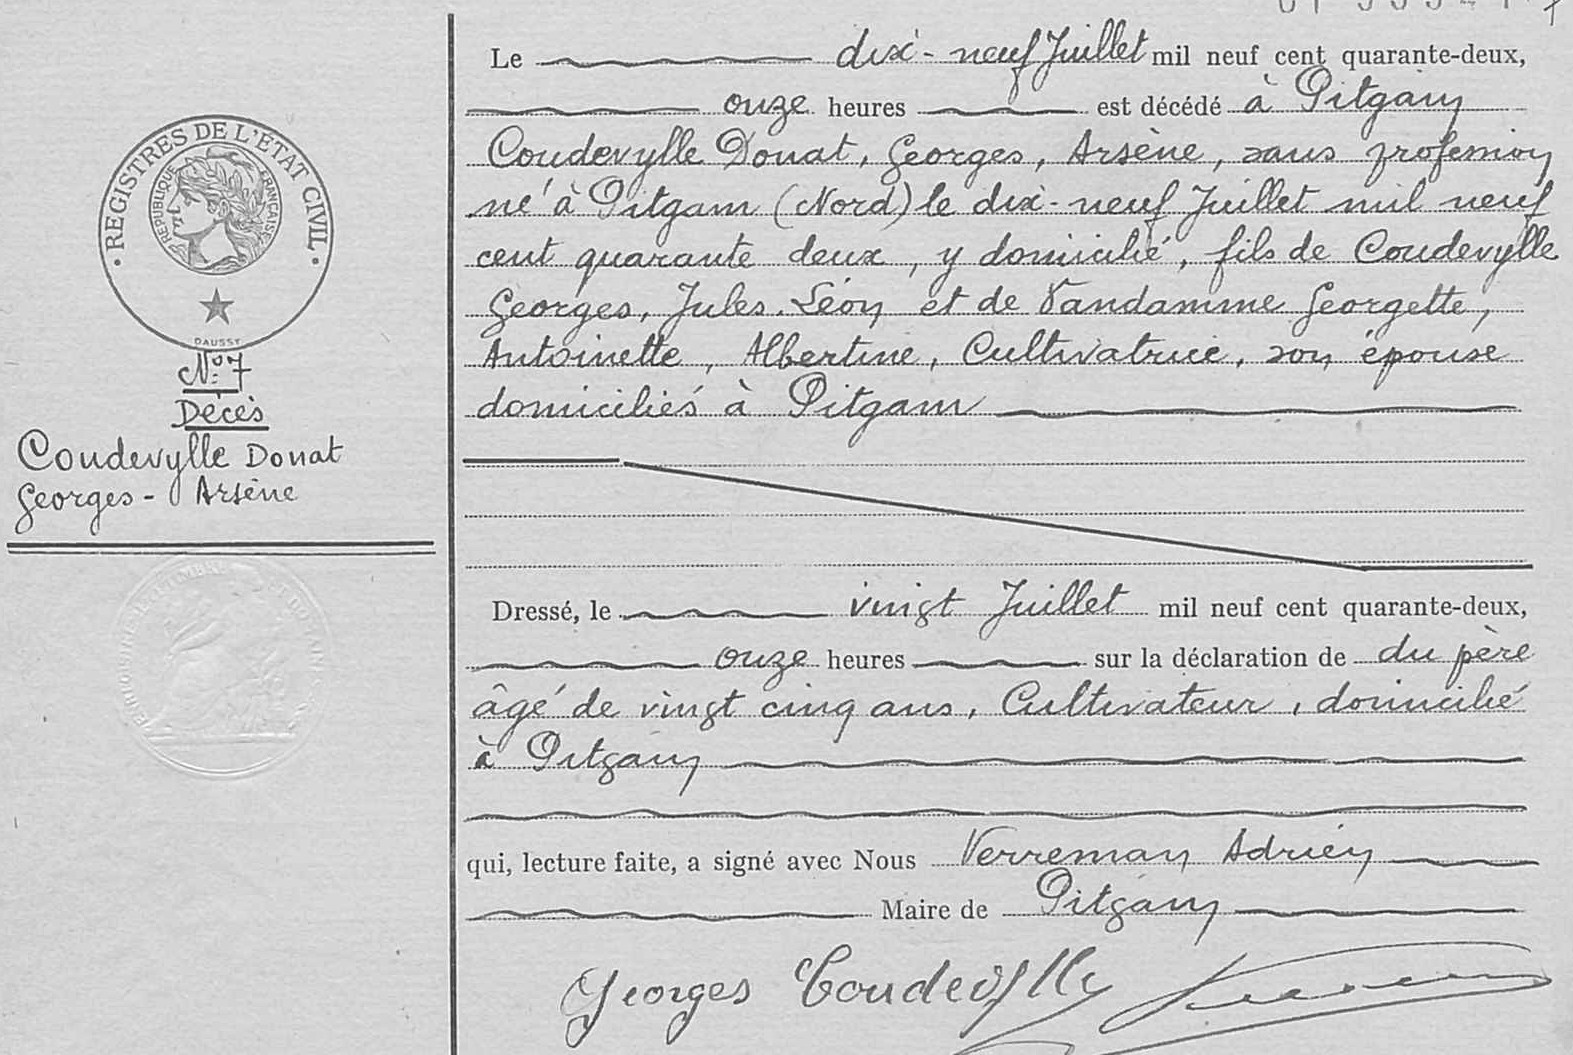 Le dix-neuf Juillet mil neuf cent quarante-deux,
onze heures est décédé à Pitgam
Coudevylle Donat, Georges, Arsène, sans profession
né à Pitgam (Nord) le dix-neuf Juillet mil neuf
cent quarante deux, y domicilié, fils de Coudevylle
Georges, Jules. Léon et de Vandamme Georgette,
Antoinette, Albertine, Cultivatrice, son épouse
domiciliés à Pitgam
REGISTRES DE L'ÉTAT CIVIL
REPUBLIQUE FRANÇAISE
DAUSSY
No: 7
Décès
Coudevylle Donat
Georges - Arsène
Dressé, le vingt Juillet mil neuf cent quarante-deux,
onze heures sur la déclaration de du père
âgé de vingt cinq ans, Cultivateur, domicilié
à Pitgam
qui, lecture faite, a signé avec Nous Verreman Adrien
Maire de Pitgam
Georges Coudevylle